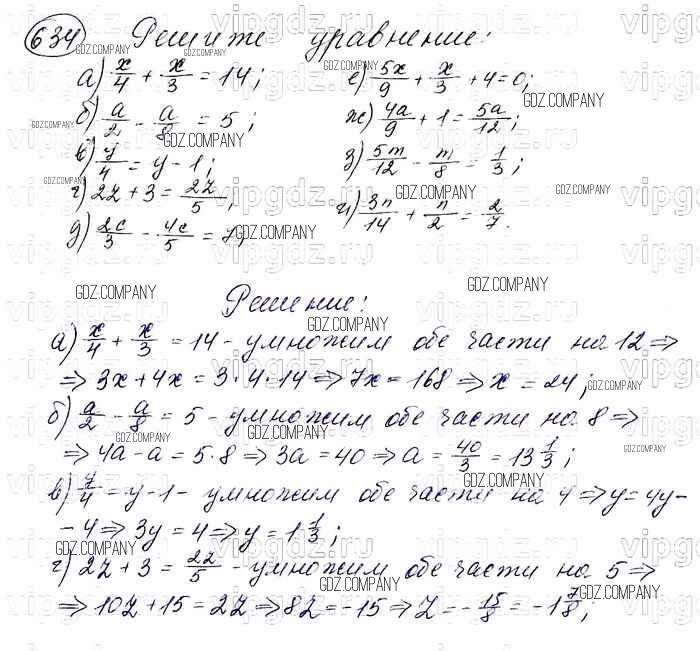 634 Решите уравнение:
а) x/4 + x/3 = 14; е) 5x/9 + x/3 + 4 = 0;
б) a/2 - a/8 = 5; ж) 4a/9 + 1 = 5a/12;
в) y/4 = y - 1; з) 5m/12 - m/8 = 1/3;
г) 2z + 3 = 2z/5; и) 3n/14 + n/2 = 2/7.
д) 2c/3 - 4c/5 = 7;
Решение:
а) x/4 + x/3 = 14 - умножим обе части на 12 ⇒
⇒ 3x + 4x = 3·4·14 ⇒ 7x = 168 ⇒ x = 24;
б) a/2 - a/8 = 5 - умножим обе части на 8 ⇒
⇒ 4a - a = 5·8 ⇒ 3a = 40 ⇒ a = 40/3 = 13 1/3;
в) y/4 = y - 1 - умножим обе части на 4 ⇒ y = 4y -
- 4 ⇒ 3y = 4 ⇒ y = 1 1/3;
г) 2z + 3 = 2z/5 - умножим обе части на 5 ⇒
⇒ 10z + 15 = 2z ⇒ 8z = -15 ⇒ z = -15/8 = -1 7/8;
GDZ.COMPANY
vipgdz.ru